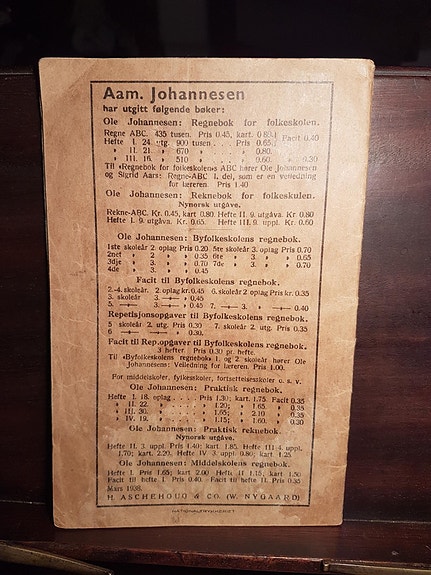 Aam. Johannesen
har utgitt følgende bøker:
Ole Johannesen: Regnebok for folkeskolen.
Regne ABC. 435 tusen. Pris 0.45, kart. 0.80. Facit 0.40
Hefte I. 24. utg. 900 tusen . . . Pris 0.65.
» II. 21. » 670 » . . . » 0.80.
» III. 16. » 510 » . . . » 0.60. » 0.30
Til «Regnebok for folkeskolen» ABC hører Ole Johannesen
og Sigrid Aars: Regne-ABC I. del, som er en veiledning
for læreren. Pris 1.40
Ole Johannesen: Reknebok for folkeskulen.
Nynorsk utgåve.
Rekne-ABC. Kr. 0.45, kart 0.80. Hefte II. 9. utgåva. Kr. 0.80
Hefte I. 9. utgåva. Kr. 0.65. Hefte III. 9. uppl. Kr. 0.60
Ole Johannesen: Byfolkeskolens regnebok.
1ste skoleår 2. oplag Pris 0.20. 5te skoleår 3. oplag Pris 0.70
2net » 2 » » 0.35 6te » 3. » » 0.65
3dje » 3. » » 0.70 7de » 3. » » 0.70
4de » 3. » » 0.45
Facit til Byfolkeskolens regnebok.
2.-4. skoleår. 2 oplag kr. 0.45 6. skoleår 2 oplag Pris kr. 0.35
3. skoleår » 0.45
5. » 0.45 7. » 0.40
Repetisjonsopgaver til Byfolkeskolens regnebok.
5 skoleår 2. utg. Pris 0.30 7. skoleår 2 utg. Pris 0.35
6 » 0.30.
Facit til Rep.opgaver til Byfolkeskolens regnebok.
3 hefter. Pris 0.30 pr. hefte.
Til «Byfolkeskolens regnebok» 1. og 2. skoleår hører Ole
Johannesens: Veiledning for læreren. Pris 1.00.
For middelskoler, fylkesskoler, fortsettelsesskoler o. s. v.
Ole Johannesen: Praktisk regnebok.
Hefte I. 18. oplag . . . Pris 1.30; kart. 1.75. Facit 0.35
» II. 22. » . . . » 1.20; » 1.65 » 0.35
» III. 30. » . . . » 1.65; » 2.10 » 0.35
» IV. 19. » . . . » 1.15; » 1.60. » 0.30
Ole Johannesen: Praktisk reknebok.
Nynorsk utgåve.
Hefte II. 3. uppl. Pris 1.40; kart. 1.85. Hefte III 4. uppl.
1.70; kart. 2.20. Hefte IV 3. uppl. 0.80; kart. 1.25
Ole Johannesen: Middelskolens regnebok.
Hefte I. Pris 1.65; kart 2.00 Hefte II 1.15; kart. 1.50
Facit til hefte I. Pris 0.40. Facit til hefte II. Pris 0.35
Mars 1938.
H. ASCHEHOUG & CO. (W. NYGAARD)
NATIONALTRYKKERIET